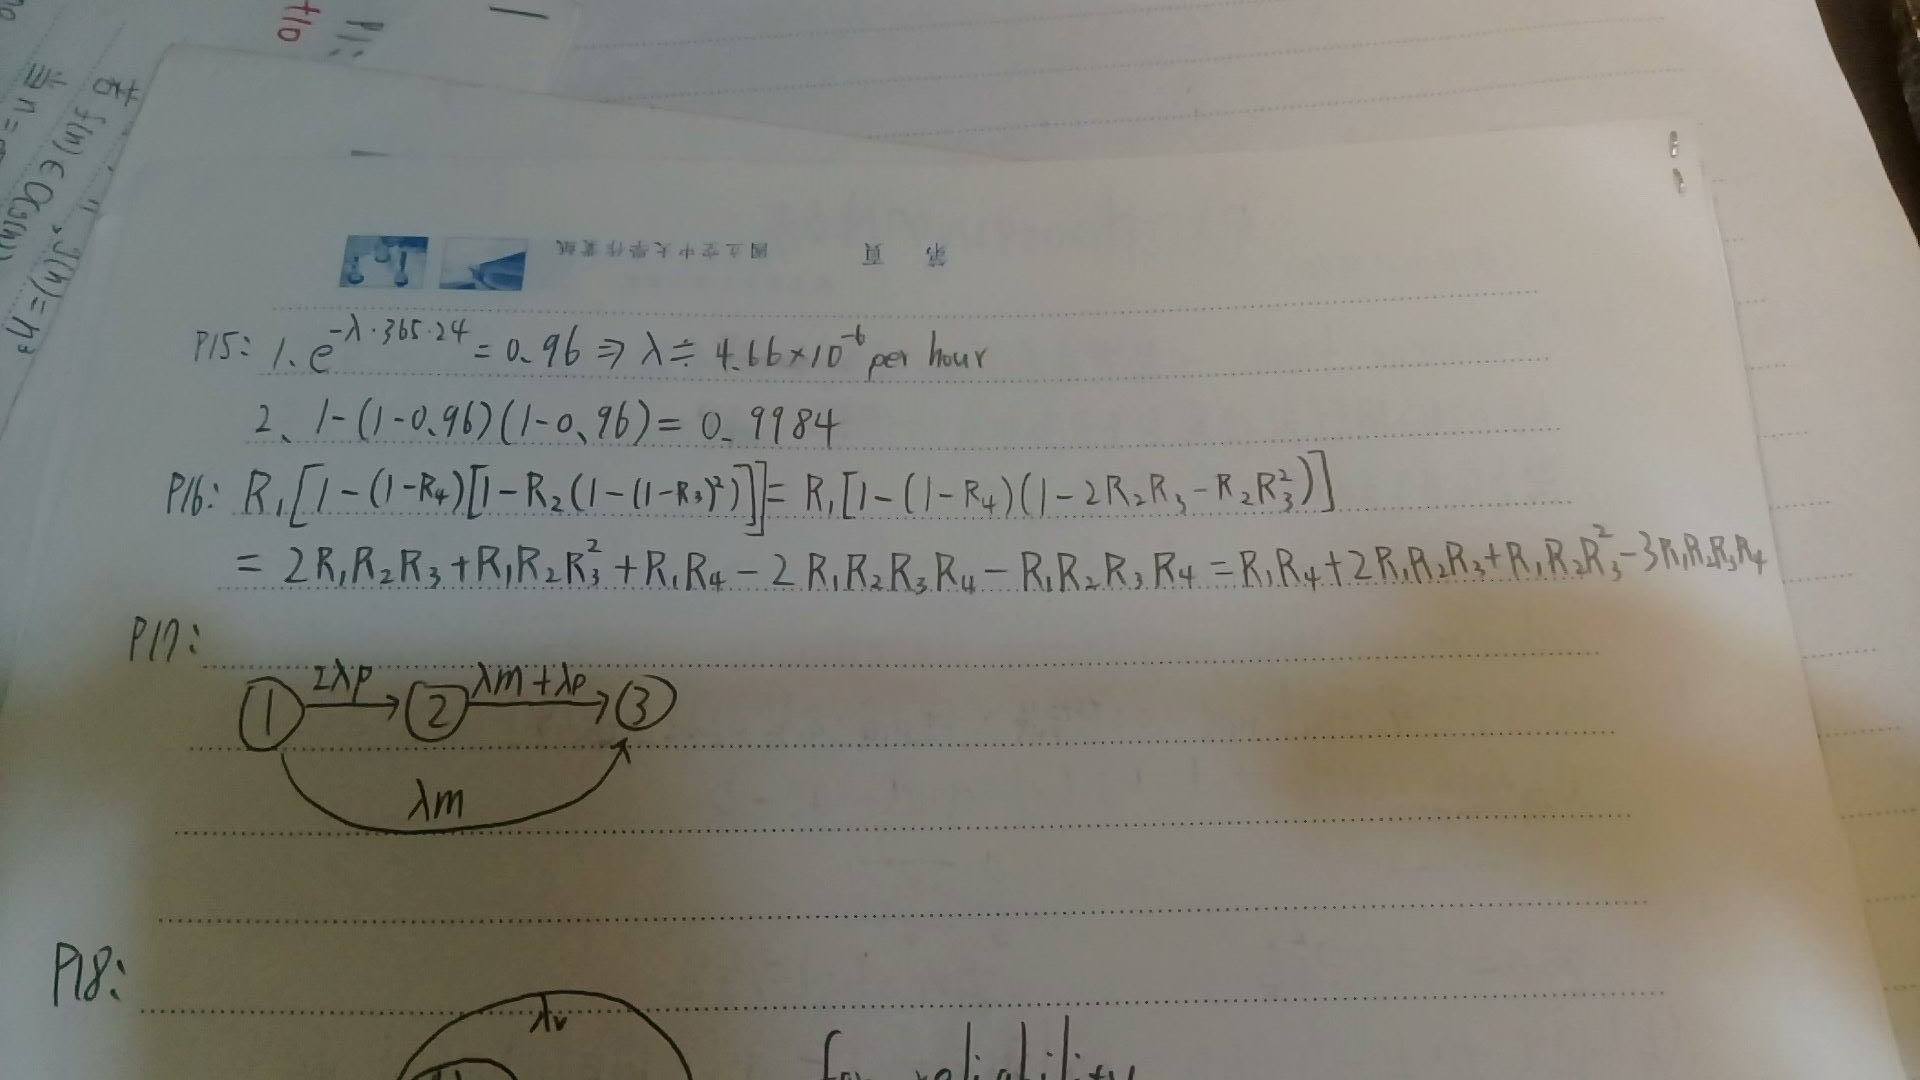 +10
P1:
若 f(n) ∈ O(g(n)), g(n)=n³
第 頁 國立空中大學作業紙
P15: 1. e^{-λ·365·24} = 0.96 ⇒ λ ≒ 4.66×10^{-6} per hour
2、1-(1-0.96)(1-0.96) = 0.9984
P16: R₁[1-(1-R₄)[1-R₂(1-(1-R₃)²)]] = R₁[1-(1-R₄)(1-2R₂R₃-R₂R₃²)]
= 2R₁R₂R₃+R₁R₂R₃²+R₁R₄-2R₁R₂R₃R₄-R₁R₂R₃R₄ = R₁R₄+2R₁R₂R₃+R₁R₂R₃²-3R₁R₂R₃R₄
P17:
2λp λm+λp
1 2 3
λm
P18:
λv
for reliability